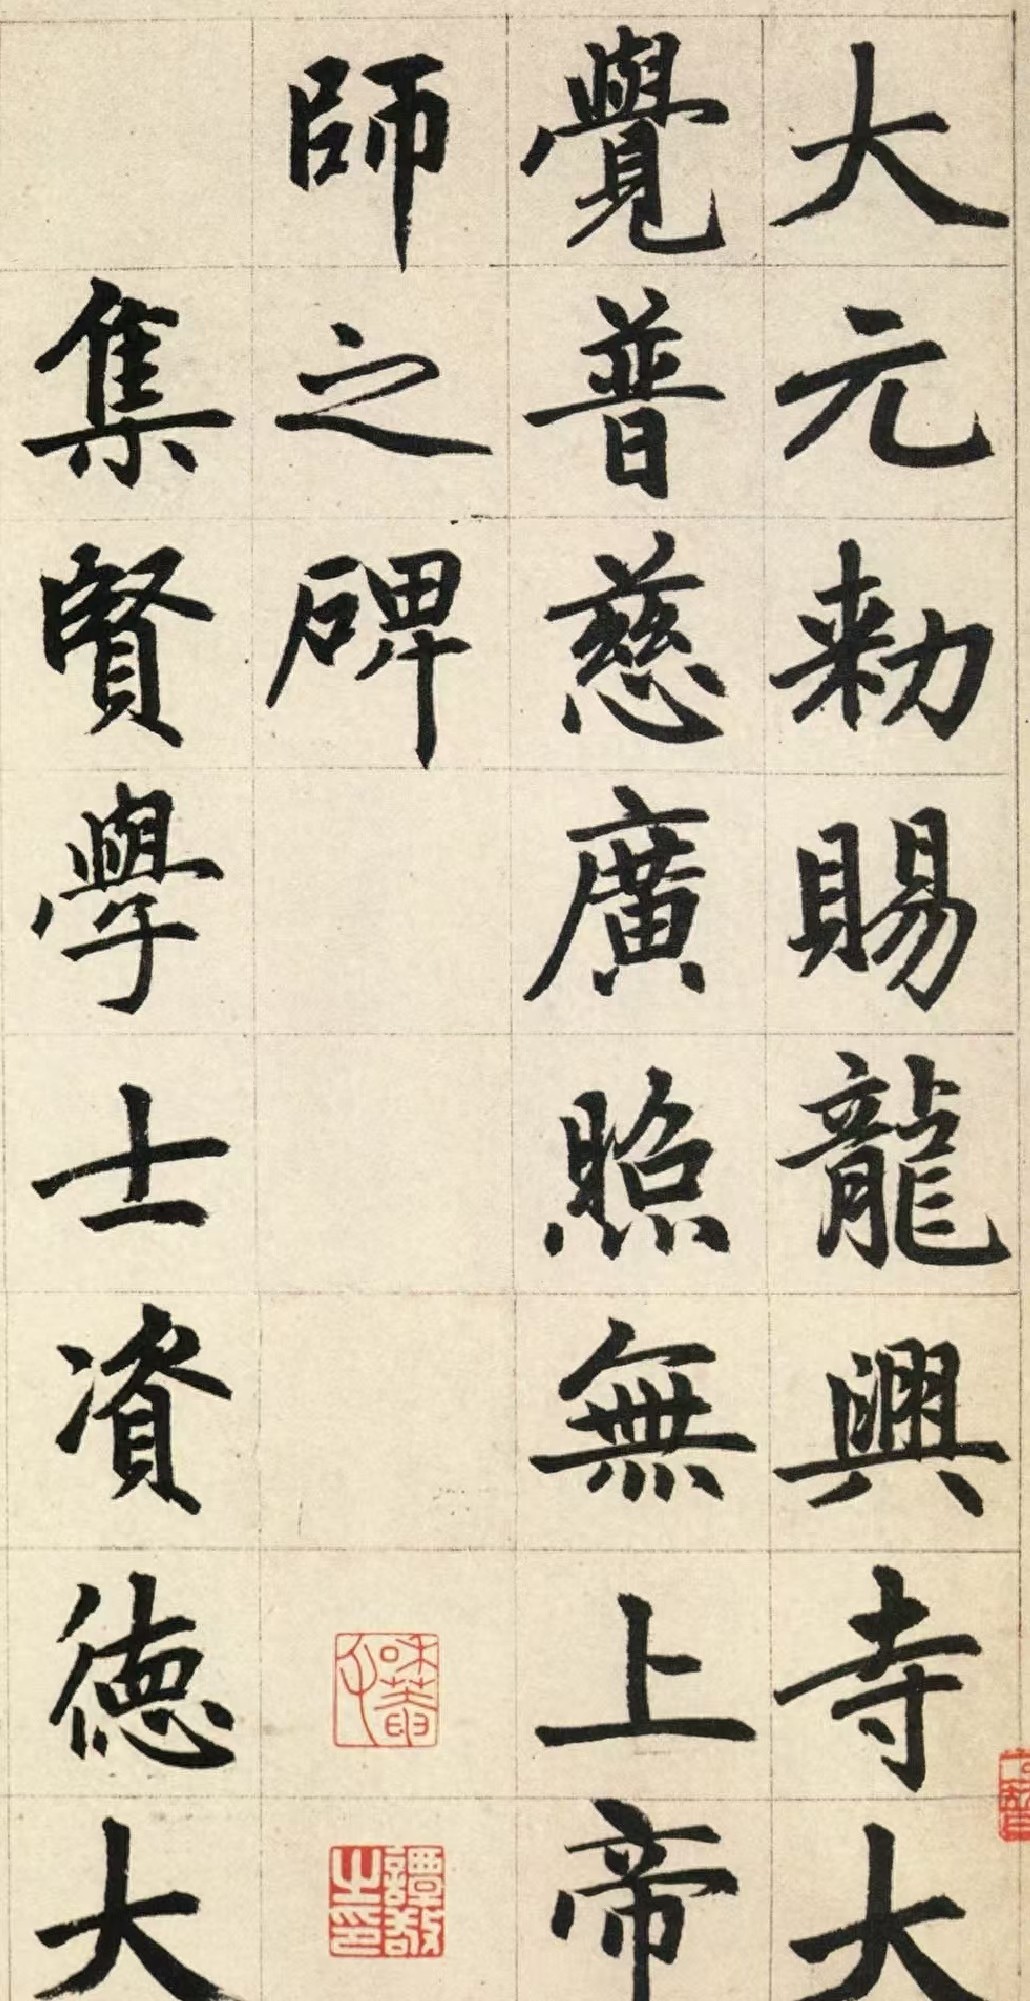 大元敕賜龍興寺大
覺普慈廣照無上帝
師之碑
集賢學士資德大
譚敬之印